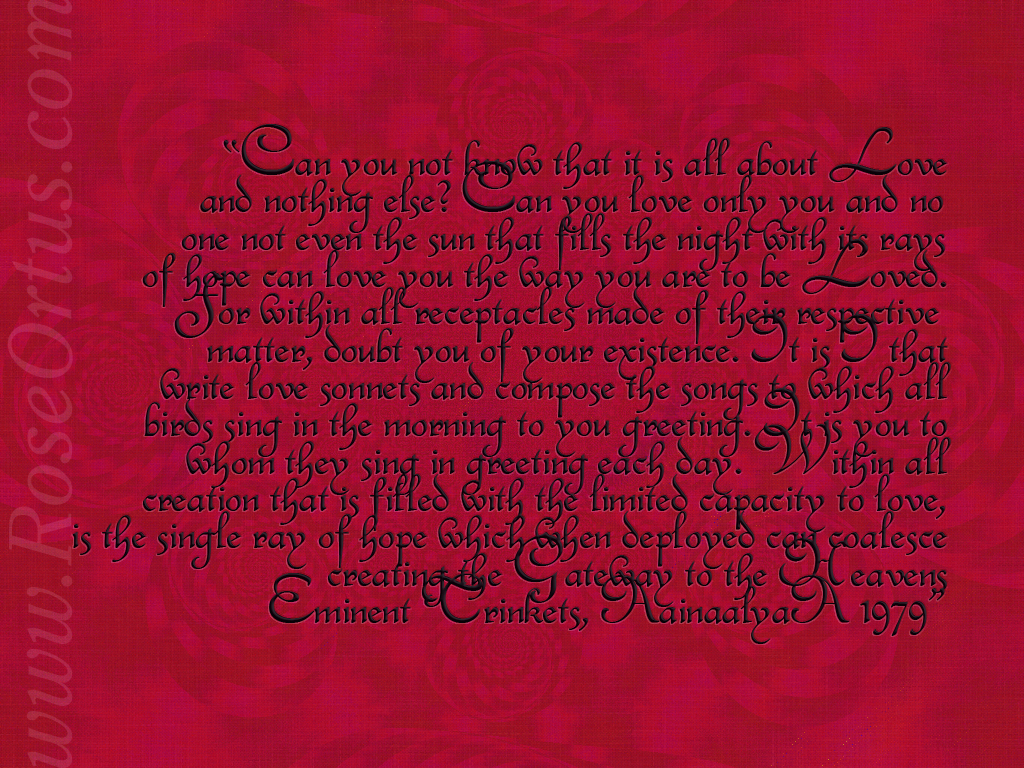 "Can you not know that it is all about Love
and nothing else? Can you love only you and no
one not even the sun that fills the night with its rays
of hope can love you the way you are to be Loved.
For within all receptacles made of their respective
matter, doubt you of your existence. It is I that
write love sonnets and compose the songs to which all
birds sing in the morning to you greeting. It is you to
whom they sing in greeting each day. Within all
creation that is filled with the limited capacity to love,
is the single ray of hope which when deployed can coalesce
creating the Gateway to the Heavens
Eminent Trinkets, AainaalyaA 1979"
www.RoseOrtus.com